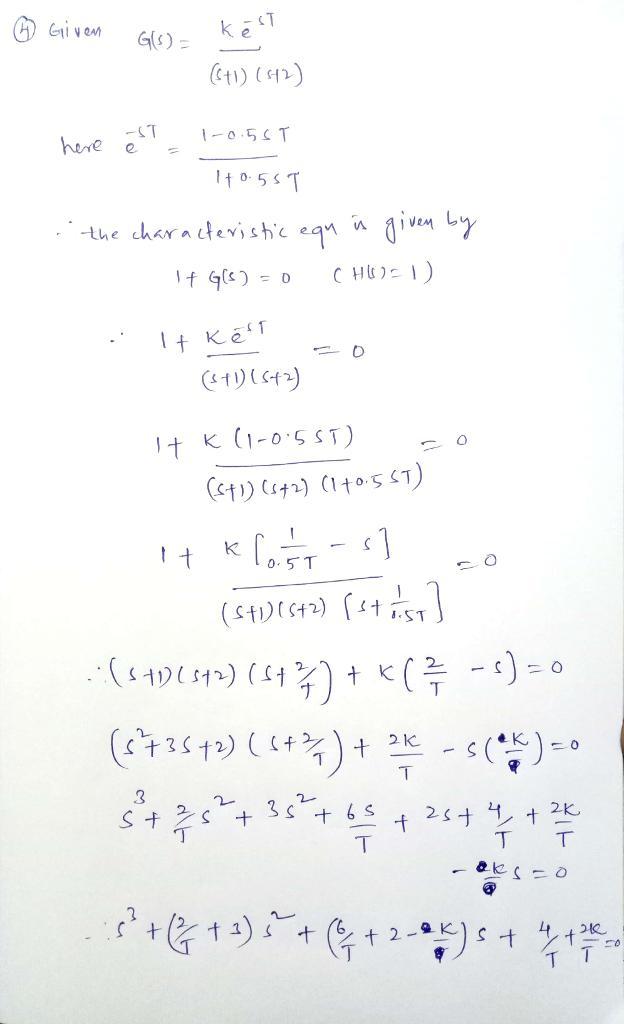 ④ Given G(s) = K e^-sT
(s+1) (s+2)
here e^-sT = 1-0.5sT
1+0.5sT
∴ the characteristic eqn is given by
1+ G(s) = 0 (H(s)=1)
∴ 1+ K e^-sT = 0
(s+1)(s+2)
1+ K (1-0.5sT) = 0
(s+1) (s+2) (1+0.5sT)
1+ K [1/0.5T - s] = 0
(s+1)(s+2) [s+ 1/0.5T]
∴ (s+1)(s+2) (s+2/T) + K(2/T - s) = 0
(s²+3s+2) (s+2/T) + 2K/T - s(K) = 0
s³ + 2/T s² + 3s² + 6s/T + 2s + 4/T + 2K/T
- Ks = 0
∴ s³ + (2/T + 3) s² + (6/T + 2 - K) s + 4/T + 2K/T = 0